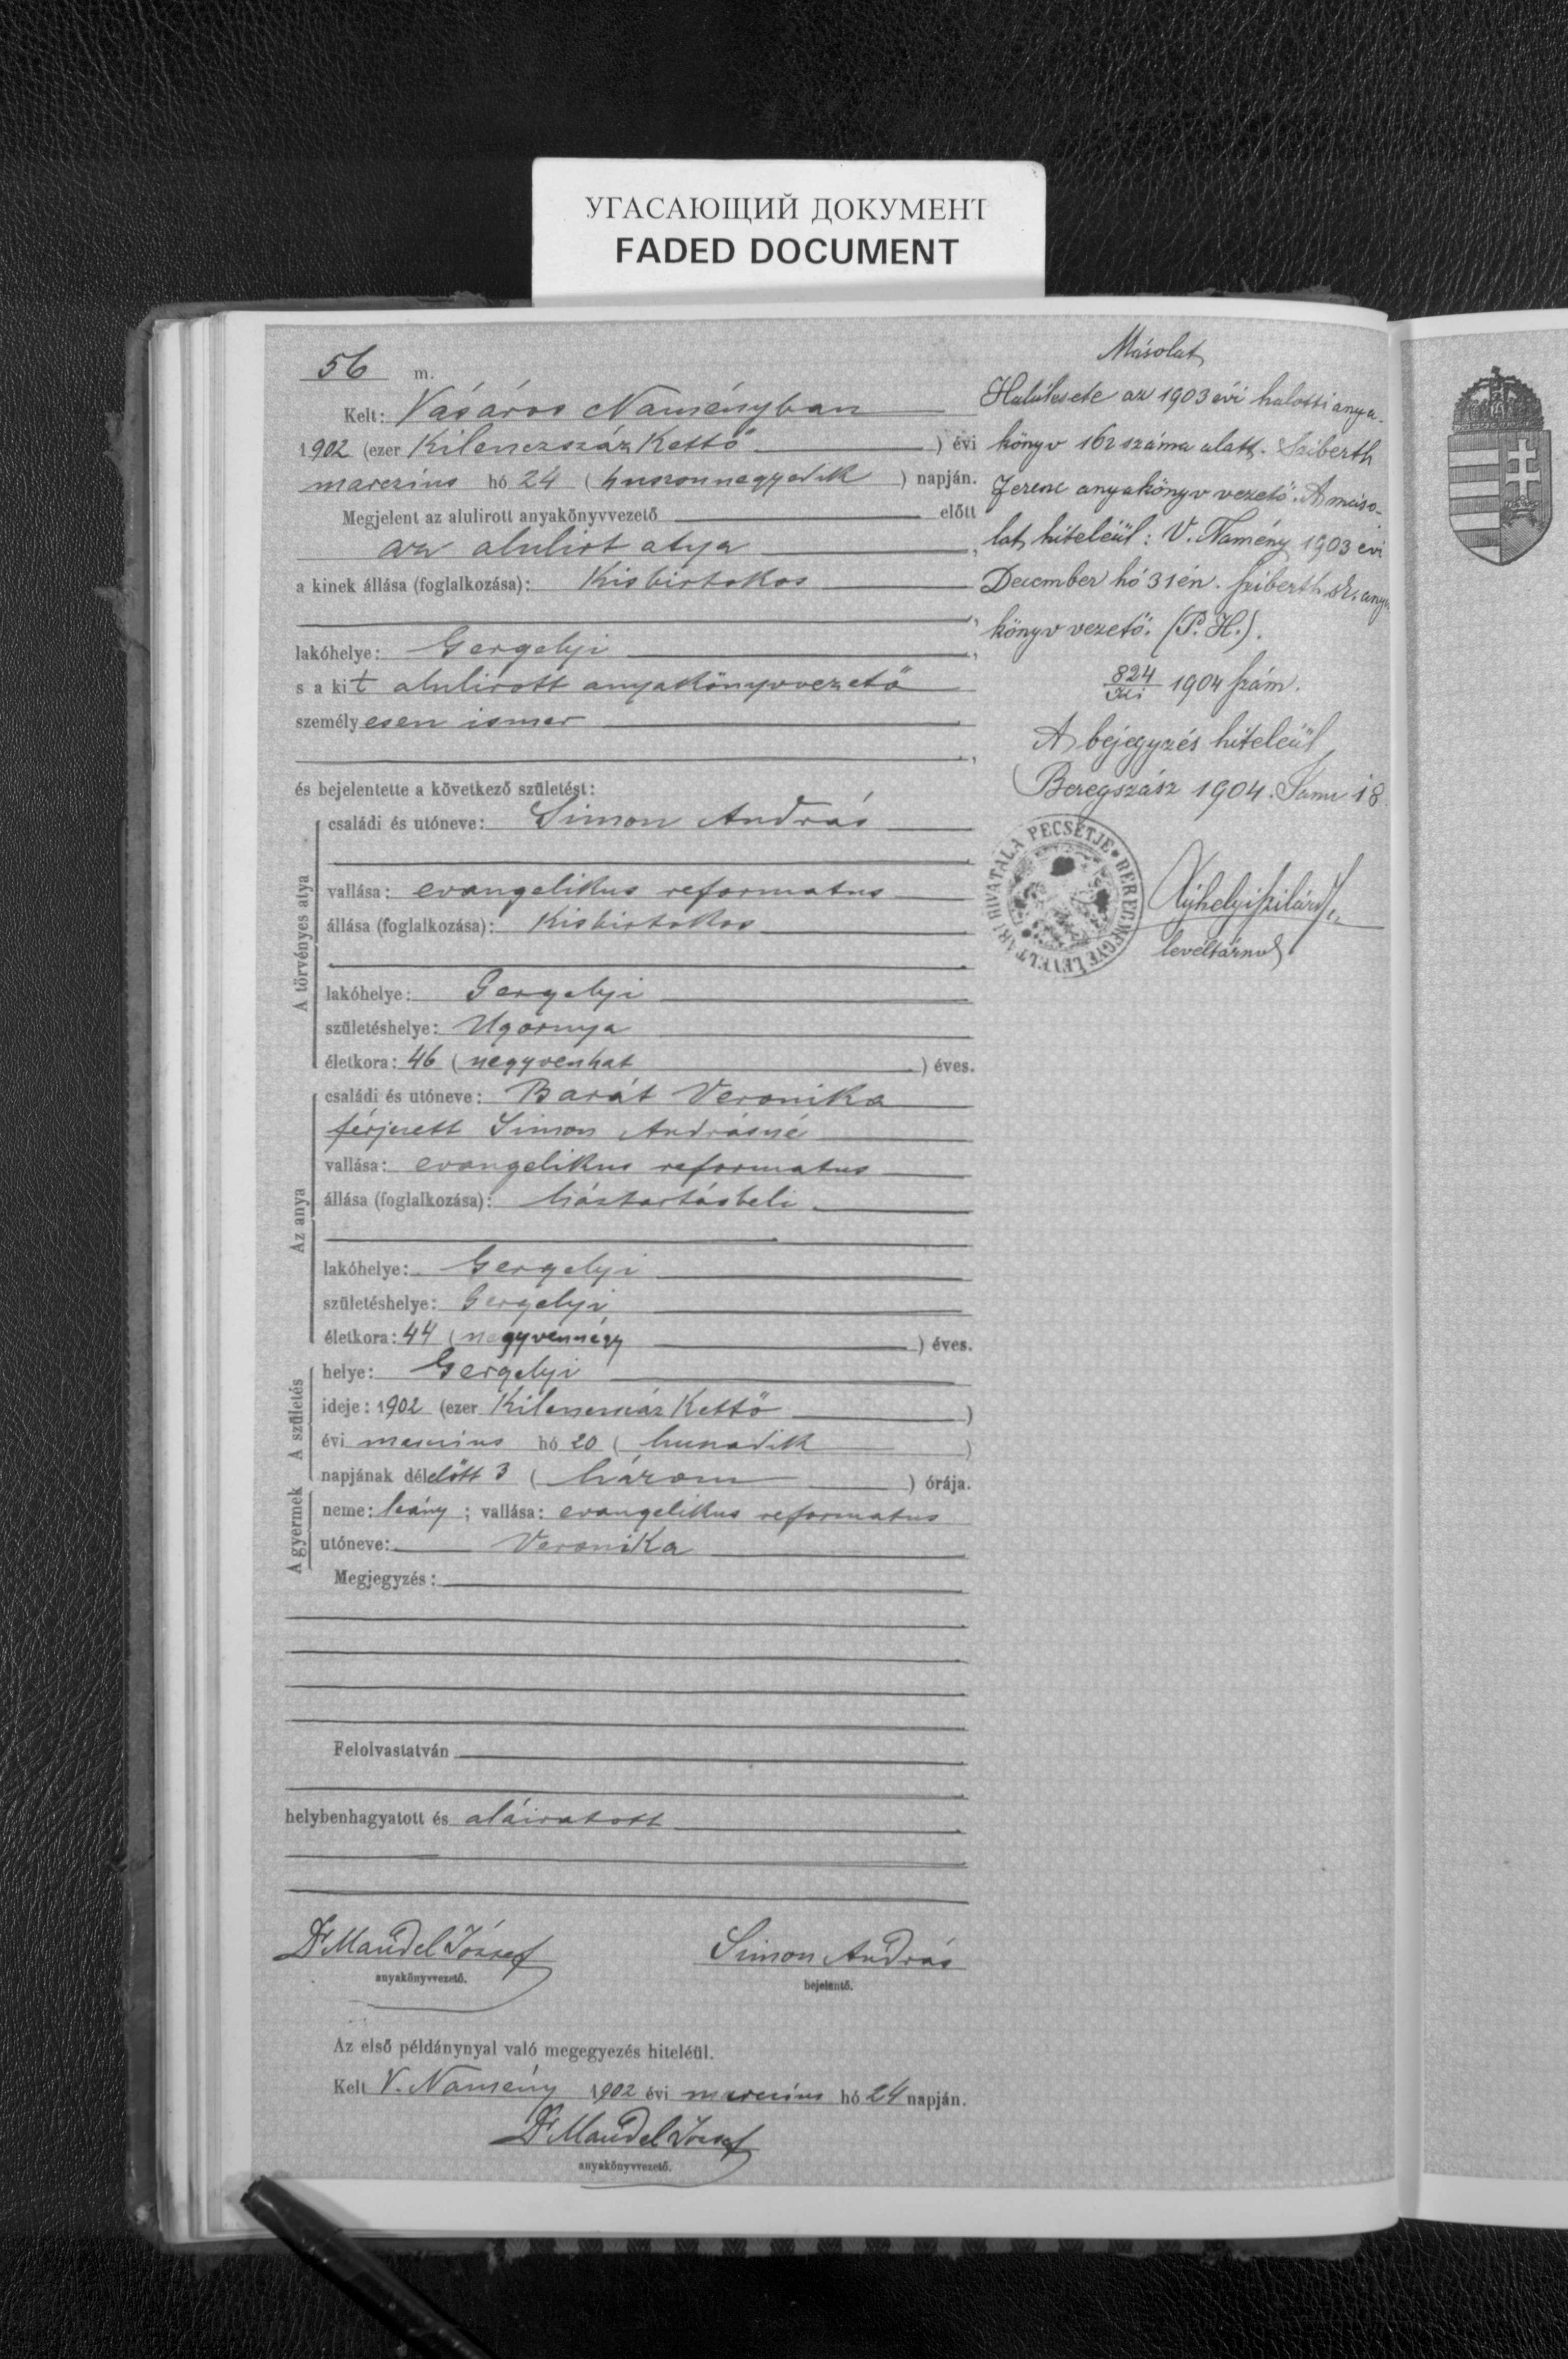 УГАСАЮЩИЙ ДОКУМЕНТ
FADED DOCUMENT
56 m.
Kelt: Vásáros Naményban
1902 (ezer Kilenczszáz Kettő ) évi
marczius hó 24 (huszonnegyedik ) napján.
Megjelent az alulirott anyakönyvvezető előtt
az alulirt atya,
a kinek állása (foglalkozása): Kisbirtokos
lakóhelye: Gergelyi,
s a kit alulirott anyakönyvvezető
személyesen ismer
és bejelentette a következő születést:
A törvényes atya
családi és utóneve: Simon András
vallása: evangelikus reformatus
állása (foglalkozása): Kisbirtokos
lakóhelye: Gergelyi
születéshelye: Ugornya
életkora: 46 (negyvenhat ) éves.
Az anya
családi és utóneve: Barát Veronika
férjezett Simon Andrásné
vallása: evangelikus reformatus
állása (foglalkozása): háztartásbeli
lakóhelye: Gergelyi
születéshelye: Gergelyi
életkora: 44 (negyvennégy ) éves.
A születés
helye: Gergelyi
ideje: 1902 (ezer Kilenczszáz Kettő )
évi marczius hó 20 (huszadik )
napjának délelőtt 3 (három ) órája.
A gyermek
neme: leány; vallása: evangelikus reformatus
utóneve: Veronika
Megjegyzés:
Felolvastatván
helybenhagyatott és aláiratott
Dr Mandel József
anyakönyvvezető.
Simon András
bejelentő.
Az első példánynyal való megegyezés hiteléül.
Kelt V. Namény 1902 évi marczius hó 24 napján.
Dr Mandel József
anyakönyvvezető.
Másolat
Halálesete az 1903 évi halotti anya-
könyv 162 száma alatt. Sziberth
Ferenc anyakönyvvezető. A máso-
lat hiteléül: V. Namény 1903 évi
December hó 31én. Sziberth sk. anya
könyv vezető. (P. H.).
824 1904 szám.
A bejegyzés hiteléül
Beregszász 1904. Janu 18
BEREGMEGYE LEVÉLTÁRI HIVATALA PECSÉTJE
Ujhelyi Szilárd
levéltárnok